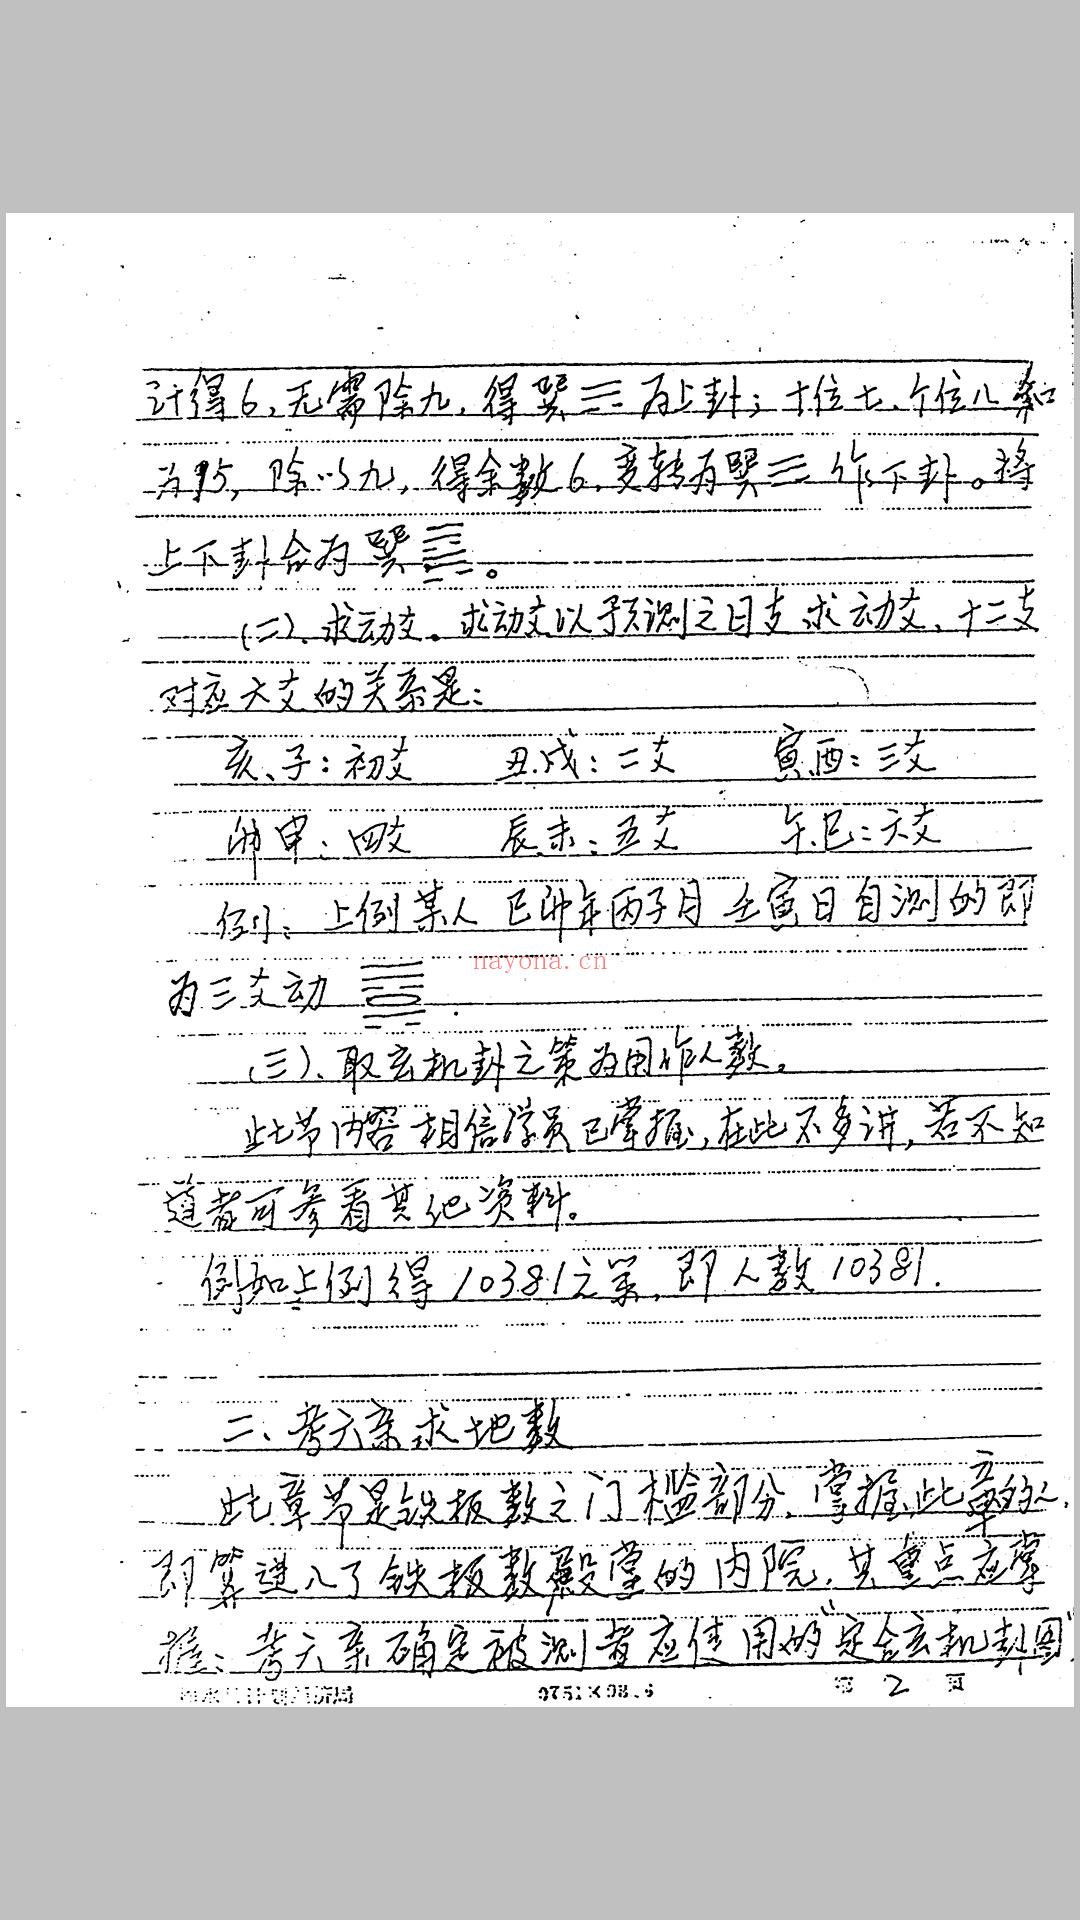 计得6，无需除九，得巽☴为上卦；十位七、个位八和
为15，除以九，得余数6，变转为巽☴作下卦。将
上下卦合为巽䷸。
(二)、求动爻。求动爻以予预测之日支求动爻、十二支
对应六爻的关系是：
亥、子：初爻 丑.戌：二爻 寅酉：三爻
卯申：四爻 辰.未：五爻 午.巳：六爻
例：上例某人 己卯年丙子月 壬寅日自测的即
为三爻动
nayona.cn
(三)、取玄机卦之策为用作人数。
此节内容相信学员已掌握，在此不多讲，若不知
道者可参看其他资料。
例如上例得10381之策，即人数10381.
二、考六亲求地数
此章节是铁板数之门槛部分，掌握此章的人，
即算进入了铁板数殿堂的内院，其重点应掌
握：考六亲确定被测者应使用的“定舍玄机卦图”
0751×08.6
第 2 页